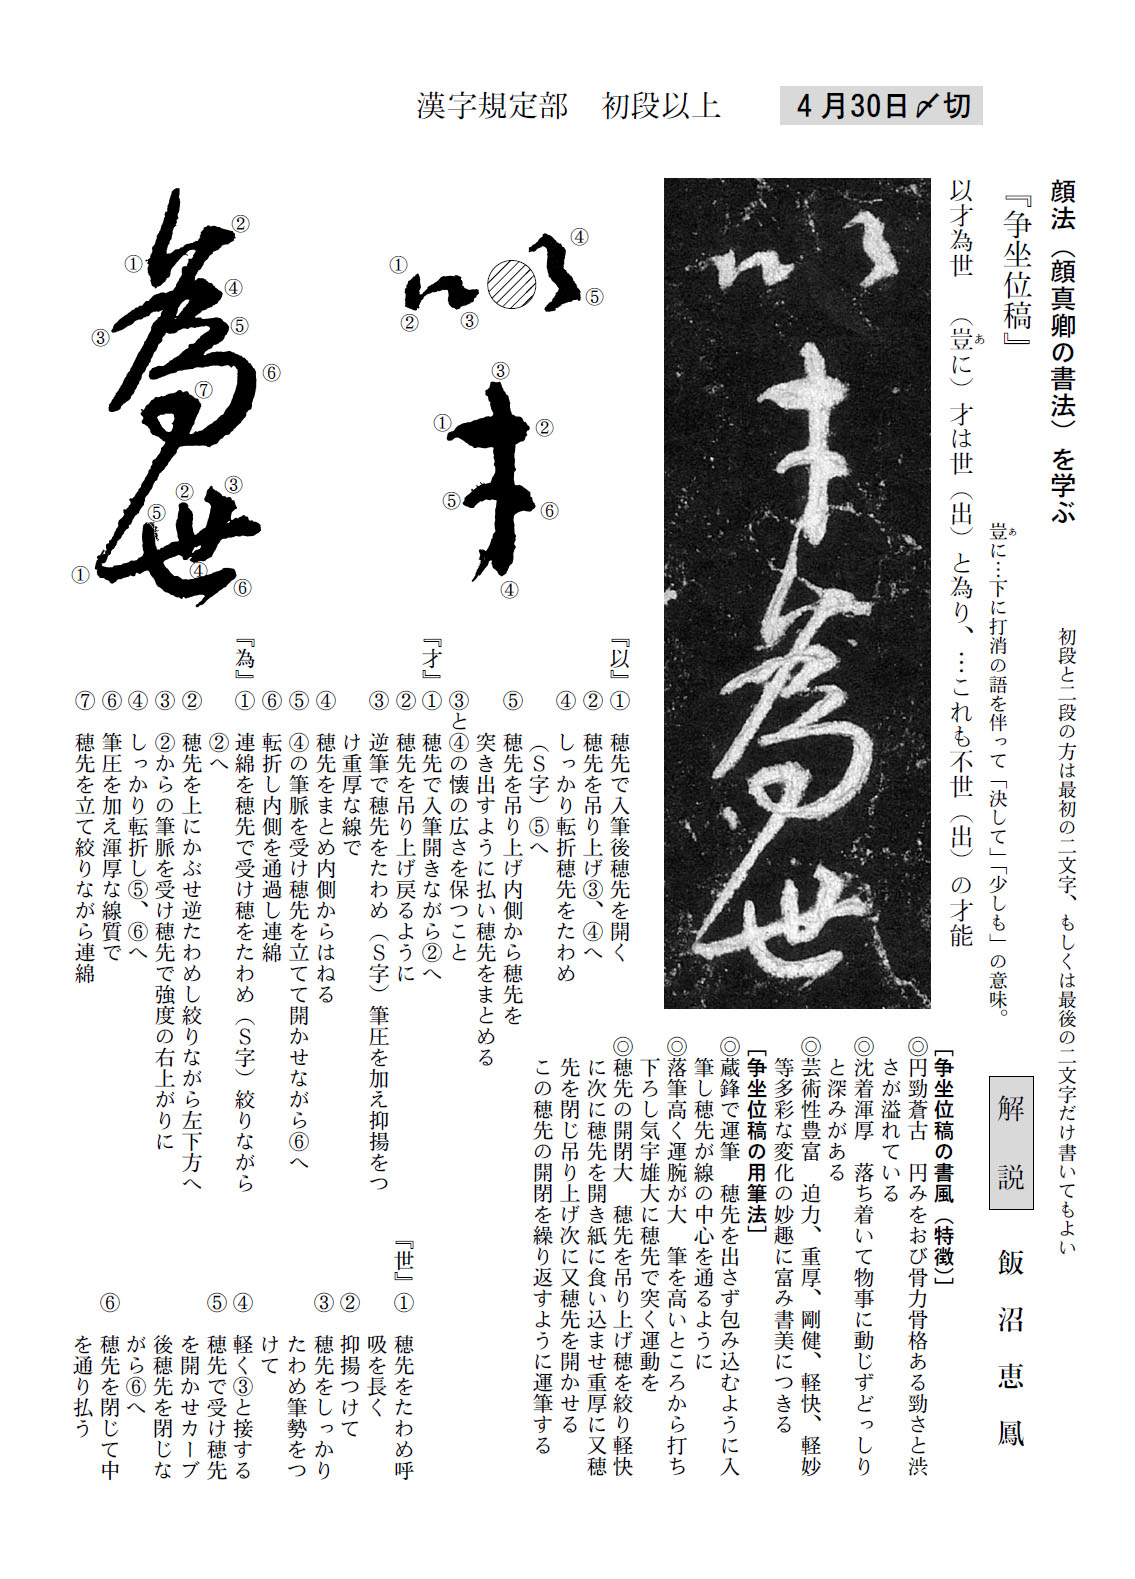 漢字規定部　初段以上
４月30日〆切
顔法（顔真卿の書法）を学ぶ
初段と二段の方は最初の二文字、もしくは最後の二文字だけ書いてもよい
『争坐位稿』
豈に…下に打消の語を伴って「決して」「少しも」の意味。
あ
以才為世　（豈に）才は世（出）と為り、…これも不世（出）の才能
あ
解説
飯沼恵鳳
［争坐位稿の書風（特徴）］
◎円勁蒼古　円みをおび骨力骨格ある勁さと渋
さが溢れている
◎沈着渾厚　落ち着いて物事に動じずどっしり
と深みがある
◎芸術性豊富　迫力、重厚、剛健、軽快、軽妙
等多彩な変化の妙趣に富み書美につきる
［争坐位稿の用筆法］
◎蔵鋒で運筆　穂先を出さず包み込むように入
筆し穂先が線の中心を通るように
◎落筆高く運腕が大　筆を高いところから打ち
下ろし気宇雄大に穂先で突く運動を
◎穂先の開閉大　穂先を吊り上げ穂を絞り軽快
に次に穂先を開き紙に食い込ませ重厚に又穂
先を閉じ吊り上げ次に又穂先を開かせる
この穂先の開閉を繰り返すように運筆する
以才為世
④
⑤
①
②
③
③
①
②
⑤
⑥
④
②
①
④
③
⑤
⑥
⑦
③
②
⑤
④
①
⑥
『以』①　穂先で入筆後穂先を開く
②　穂先を吊り上げ③、④へ
④　しっかり転折穂先をたわめ
（Ｓ字）⑤へ
⑤　穂先を吊り上げ内側から穂先を
突き出すように払い穂先をまとめる
③と④の懐の広さを保つこと
『才』①　穂先で入筆開きながら②へ
②　穂先を吊り上げ戻るように
③　逆筆で穂先をたわめ（Ｓ字）筆圧を加え抑揚をつ
け重厚な線で
④　穂先をまとめ内側からはねる
⑤　④の筆脈を受け穂先を立てて開かせながら⑥へ
⑥　転折し内側を通過し連綿
『為』①　連綿を穂先で受け穂をたわめ（Ｓ字）絞りながら
②へ
②　穂先を上にかぶせ逆たわめし絞りながら左下方へ
③　②からの筆脈を受け穂先で強度の右上がりに
④　しっかり転折し⑤、⑥へ
⑥　筆圧を加え渾厚な線質で
⑦　穂先を立て絞りながら連綿
『世』①　穂先をたわめ呼
吸を長く
②　抑揚つけて
③　穂先をしっかり
たわめ筆勢をつ
けて
④　軽く③と接する
⑤　穂先で受け穂先
を開かせカーブ
後穂先を閉じな
がら⑥へ
⑥　穂先を閉じて中
を通り払う